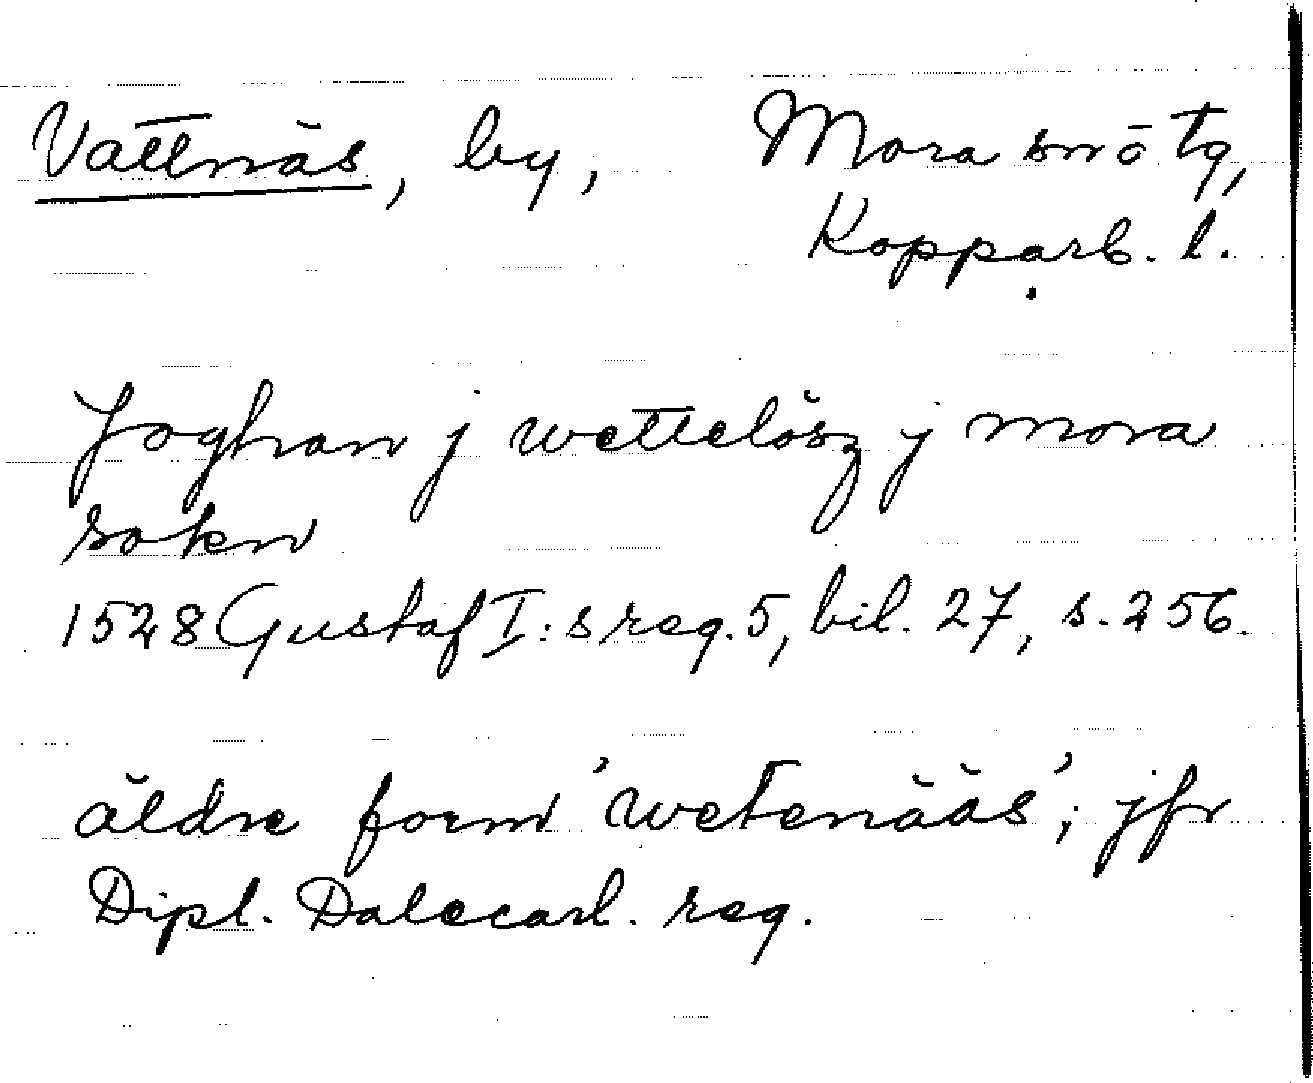 Vattnäs, by, Mora sn o tg,
Kopparb. l.
Joghan j wettelösz j mora
sokn
1528 Gustaf I:s reg. 5, bil. 27, s. 256.
äldre form 'wetenääs'; jfr
Dipl. Dalecarl. reg.